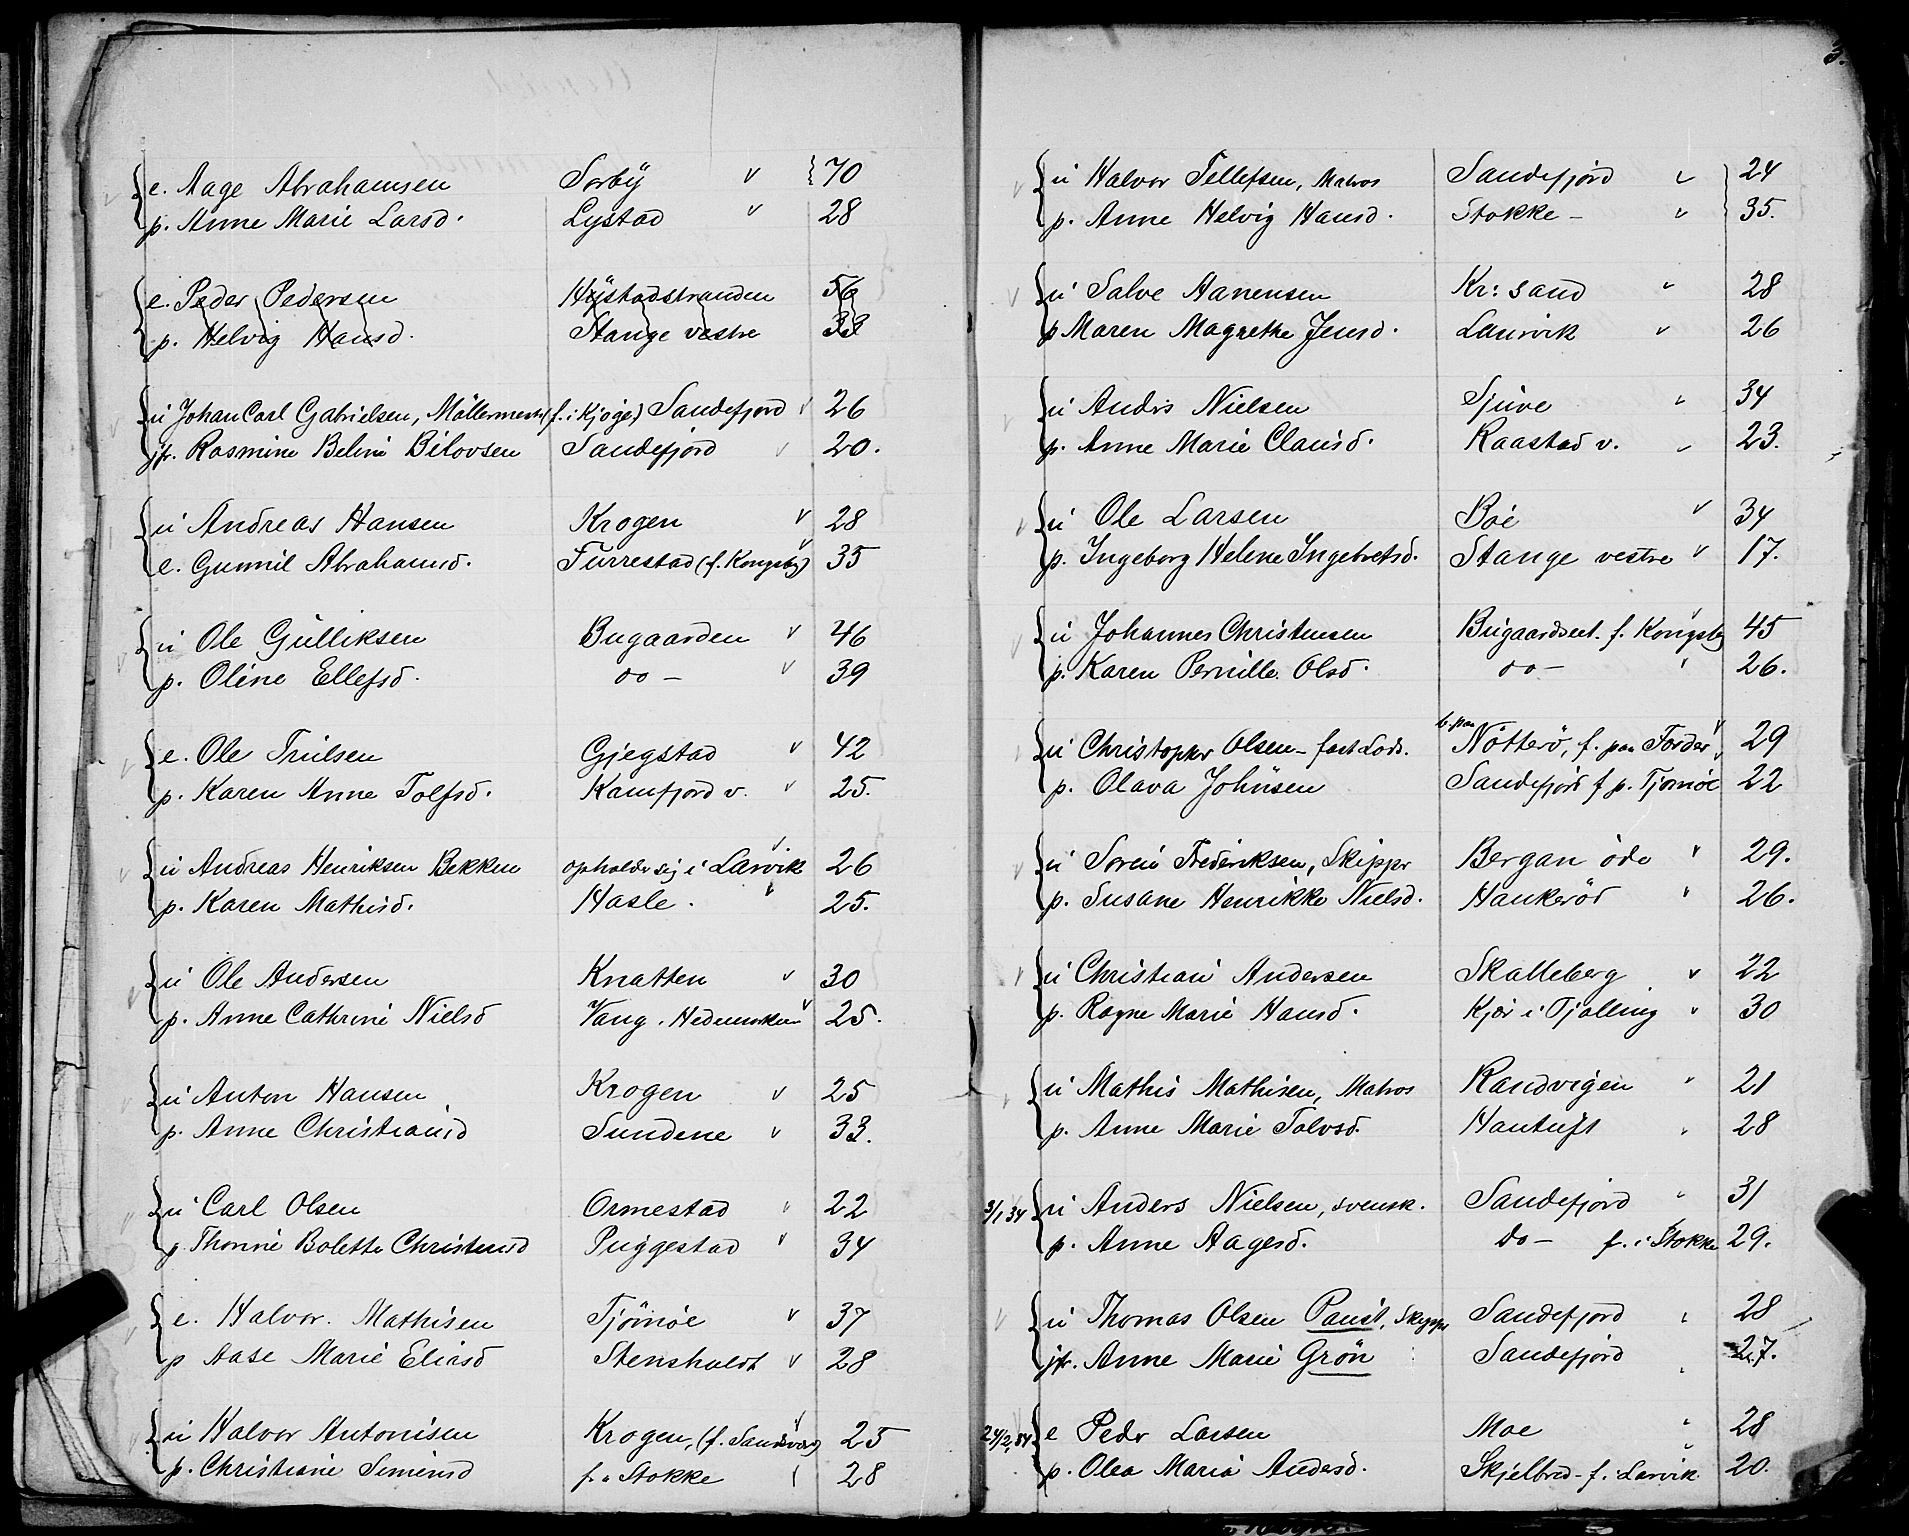 e. Aage Abrahamsen Sorby 70
p. Anne Marie Larsd. Lystad 28
e. Peder Pedersen Hystadstranden 56
p. Helvig Hansd. Stange vestre 33
u Johan Carl Gabrielsen, Möllermester (f. i Kjøge) Sandefjord 26
jfr. Rasmine Beline Bilovsen Sandefjord 20.
u Andreas Hansen Krogen 28
e. Gunnil Abrahamsd. Furrestad (f. Kongsbg) 35
u Ole Gulliksen Bugaarden 46
p. Oline Ellefsd. do - 39
e. Ole Trulsen Gjegstad 42
p. Karen Anne Tolfsd. Kamfjord v. 25.
u Andreas Henriksen Bekken opholdr sig i Larvik 26
p. Karen Mathisd. Hasle. 25.
u Ole Andersen Knatten 30
p. Anne Cathrine Nielsd Vang. Hedemarken 25.
u Anton Hansen Krogen 25
p. Anne Christiansd Sundene 33.
u Carl Olsen Ormestad 22
p. Thorine Bolette Christensd Puggestad 34
e. Halvor Mathisen Tjömöe 37
p Aase Marie Eliasd Stensholdt 28
u Halvor Antonisen Krogen, (f. Sandsvær) 25
p. Christiane Simensd f. i Stokke 28
3.
u Halvor Tellefsen, Matros Sandefjord 24
p. Anne Helvig Hansd. Stokke - 35.
u Salve Hanensen Kr: sand 28
p Maren Magrethe Jensd. Laurvik 26
u Andrs Nielsen Sjuve 34
p. Anne Marie Clausd. Raastad v. 23.
u Ole Larsen Böe 34
p. Ingeborg Helene Ingebretsd. Stange vestre 17.
u Johannes Christensen Bugaardseet. f. Kongsbg 45
p. Karen Pernille Olsd. do - 26.
b. paa
u Christophr Olsen - fast Lods. Nötterö, f. paa Forder 29
p. Olava Johnsen Sandefjord f p. Tjomöe 22
u Soren Frederiksen, Skippr Bergan öde 29.
p. Susane Henrikke Nielsd. Haukeröd 26.
u Christian Andersen Skalleberg 22
p. Ragne Marie Hansd. Kjær i Tjølling 30
u Mathis Mathisen, Matros Randvigen 21
p. Anne Marie Tolvsd. Hautuft 28
3/1 34 u Anders Nielsen, svensk. Sandefjord 31
p. Anne Aagesd. do - f. i Stokke 29.
u Thomas Olsen Paust, Skippr Sandefjord 28
jfr. Anne Marie Grön Sandefjord 27.
24/2 84 e Pedr Larsen Moe 28
p. Olea Maria Andersd. Skjelbred - f. i Larvik 20.